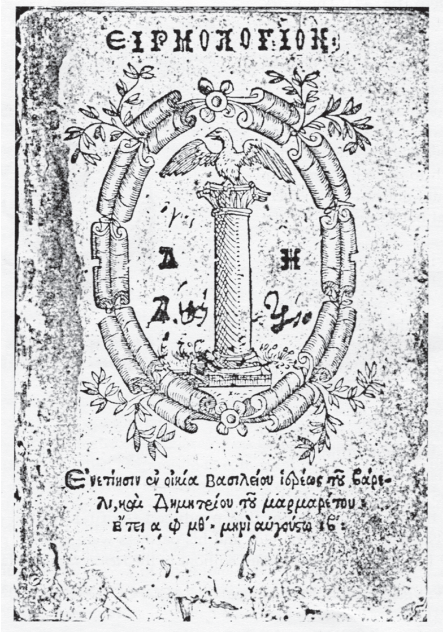 ΕΙΡΜΟΛΟΓΙΟΝ:
Δ Η
Ἐνετίησιν ἐν οἰκία Βασιλείου ἱερέως τοῦ βάρε-
λι, καὶ Δημητρίου τοῦ μαρμαρέτου:
Ἔτει α φ μθ΄. μηνὶ αὐγούστω ιβ: